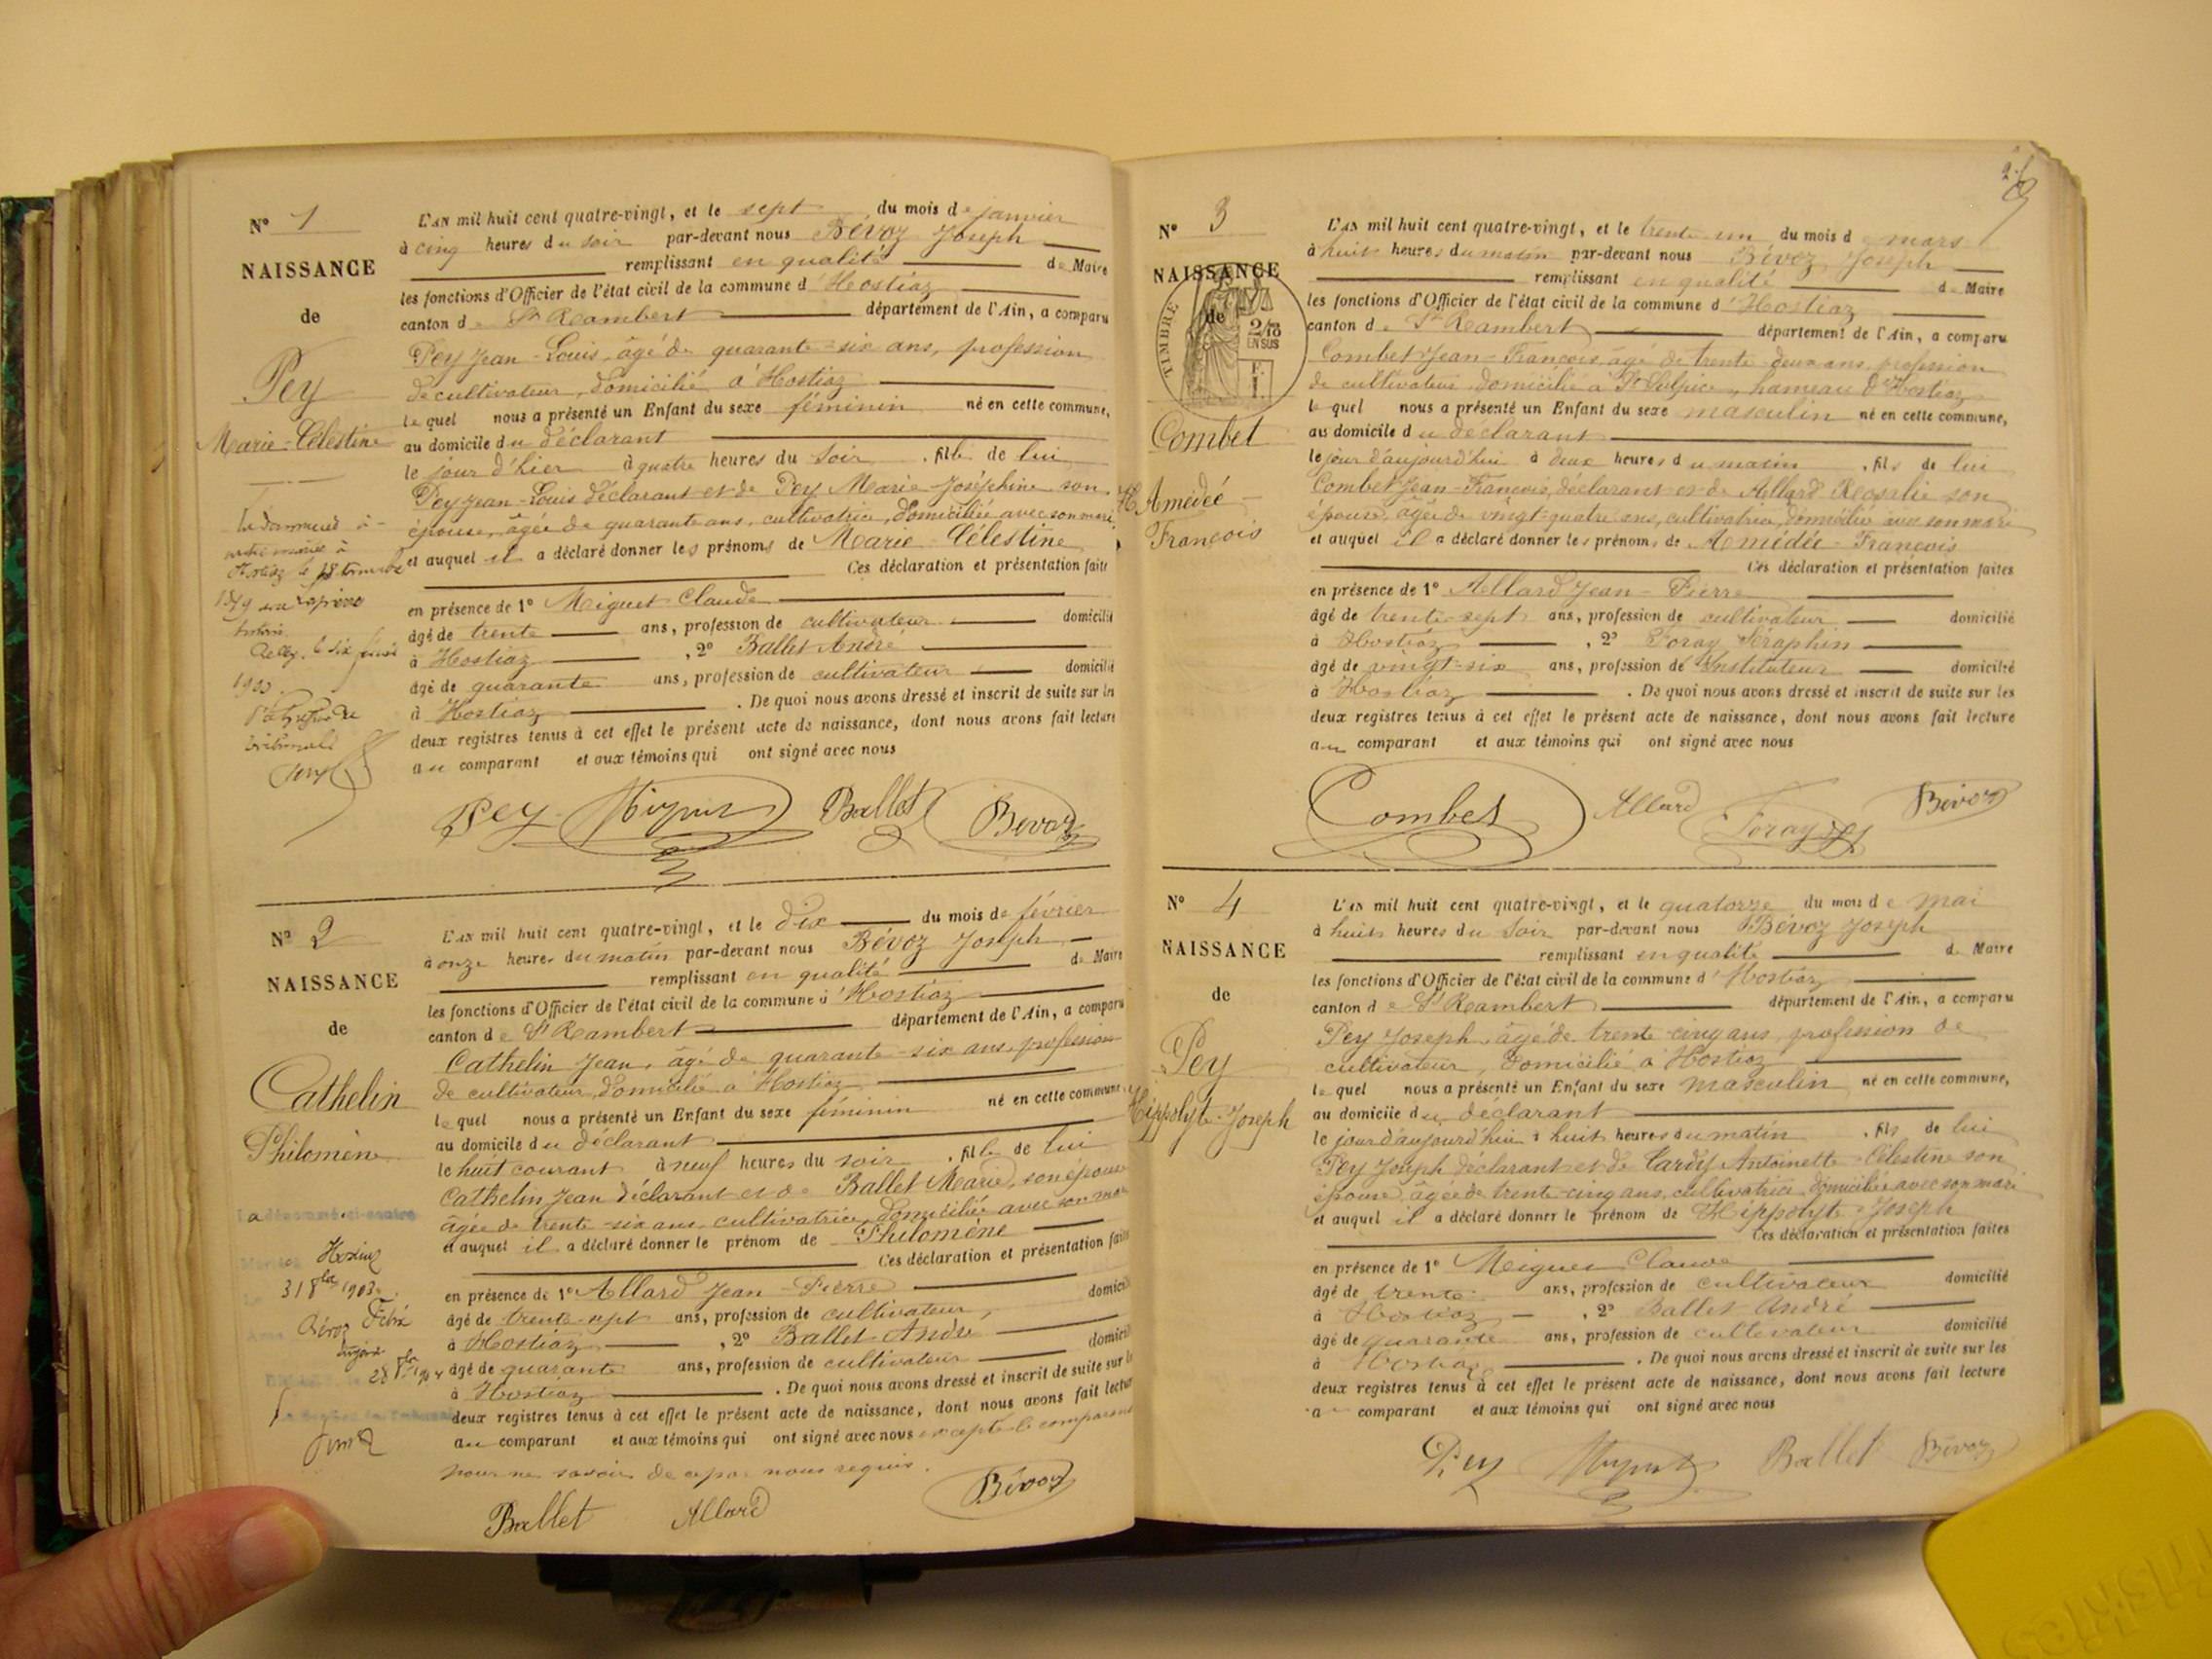 N° 1
NAISSANCE
de
Pey
Marie-Célestine
L'AN mil huit cent quatre-vingt, et le sept du mois de janvier
à cinq heures du soir par-devant nous Bévoz Joseph
remplissant en qualité de Maire
les fonctions d'Officier de l'état civil de la commune d'Hostiaz
canton de St Rambert département de l'Ain, a comparu
Pey Jean-Louis, âgé de quarante-six ans, profession
de cultivateur, domicilié à Hostiaz
lequel nous a présenté un Enfant du sexe féminin né en cette commune,
au domicile du déclarant
le jour d'hier à quatre heures du soir, fille de lui
Pey Jean-Louis déclarant et de Pey Marie-Joséphine son
épouse, âgée de quarante ans, cultivatrice, domiciliée avec son mari,
et auquel il a déclaré donner les prénoms de Marie-Célestine
Ces déclaration et présentation faites
en présence de 1° Miguet Claude
âgé de trente ans, profession de cultivateur domicilié
à Hostiaz, 2° Ballet André
âgé de quarante ans, profession de cultivateur domicilié
à Hostiaz. De quoi nous avons dressé et inscrit de suite sur les
deux registres tenus à cet effet le présent acte de naissance, dont nous avons fait lecture
au comparant et aux témoins qui ont signé avec nous
Pey Miguet Ballet Bévoz
N° 2
NAISSANCE
de
Cathelin
Philomène
31 8bre 1903
Bévoz Félix
28 1904
L'AN mil huit cent quatre-vingt, et le dix du mois de février
à onze heures du matin par-devant nous Bévoz Joseph
remplissant en qualité de Maire
les fonctions d'Officier de l'état civil de la commune d'Hostiaz
canton de St Rambert département de l'Ain, a comparu
Cathelin Jean, âgé de quarante-six ans, profession
de cultivateur, domicilié à Hostiaz
lequel nous a présenté un Enfant du sexe féminin né en cette commune
au domicile du déclarant
le huit courant à neuf heures du soir, fille de lui
Cathelin Jean déclarant et de Ballet Marie, son épouse
âgée de trente-six ans, cultivatrice, domiciliée avec son mari
et auquel il a déclaré donner le prénom de Philomène
Ces déclaration et présentation faites
en présence de 1° Allard Jean-Pierre
âgé de trente-sept ans, profession de cultivateur, domicilié
à Hostiaz, 2° Ballet André
âgé de quarante ans, profession de cultivateur domicilié
à Hostiaz. De quoi nous avons dressé et inscrit de suite sur les
deux registres tenus à cet effet le présent acte de naissance, dont nous avons fait lecture
au comparant et aux témoins qui ont signé avec nous excepté le comparant
pour ne savoir de ce par nous requis.
Ballet Allard Bévoz
N° 3
NAISSANCE
de
TIMBRE
2/10
EN SUS
F.
1.
Combet
Amédée
François
L'AN mil huit cent quatre-vingt, et le trente-un du mois de mars
à huit heures du matin par-devant nous Bévoz Joseph
remplissant en qualité de Maire
les fonctions d'Officier de l'état civil de la commune d'Hostiaz
canton de St Rambert département de l'Ain, a comparu
Combet Jean-François, âgé de trente-deux ans, profession
de cultivateur, domicilié à St Sulpice, hameau d'Hostiaz
lequel nous a présenté un Enfant du sexe masculin né en cette commune,
au domicile du déclarant
le jour d'aujourd'hui à deux heures du matin, fils de lui
Combet Jean-François, déclarant et de Allard Rosalie son
épouse, âgée de vingt-quatre ans, cultivatrice, domicilié avec son mari
et auquel il a déclaré donner les prénoms de Amédée-François
Ces déclaration et présentation faites
en présence de 1° Allard Jean-Pierre
âgé de trente-sept ans, profession de cultivateur domicilié
à Hostiaz, 2° Foray Séraphin
âgé de vingt-six ans, profession de Instituteur domicilié
à Hostiaz. De quoi nous avons dressé et inscrit de suite sur les
deux registres tenus à cet effet le présent acte de naissance, dont nous avons fait lecture
au comparant et aux témoins qui ont signé avec nous
Combet Allard Foray Bévoz
N° 4
NAISSANCE
de
Pey
Hippolyte-Joseph
L'AN mil huit cent quatre-vingt, et le quatorze du mois de mai
à huit heures du soir par-devant nous Bévoz Joseph
remplissant en qualité de Maire
les fonctions d'Officier de l'état civil de la commune d'Hostiaz
canton de St Rambert département de l'Ain, a comparu
Pey Joseph, âgé de trente-cinq ans, profession de
cultivateur, domicilié à Hostiaz
lequel nous a présenté un Enfant du sexe masculin né en cette commune,
au domicile du déclarant
le jour d'aujourd'hui à huit heures du matin, fils de lui
Pey Joseph déclarant et de Tardy Antoinette-Célestine son
épouse, âgée de trente-cinq ans, cultivatrice, domiciliée avec son mari
et auquel il a déclaré donner le prénom de Hippolyte-Joseph
Ces déclaration et présentation faites
en présence de 1° Miguet Claude
âgé de trente ans, profession de cultivateur domicilié
à Hostiaz, 2° Ballet André
âgé de quarante ans, profession de cultivateur domicilié
à Hostiaz. De quoi nous avons dressé et inscrit de suite sur les
deux registres tenus à cet effet le présent acte de naissance, dont nous avons fait lecture
a comparant et aux témoins qui ont signé avec nous
Pey Miguet Ballet Bévoz